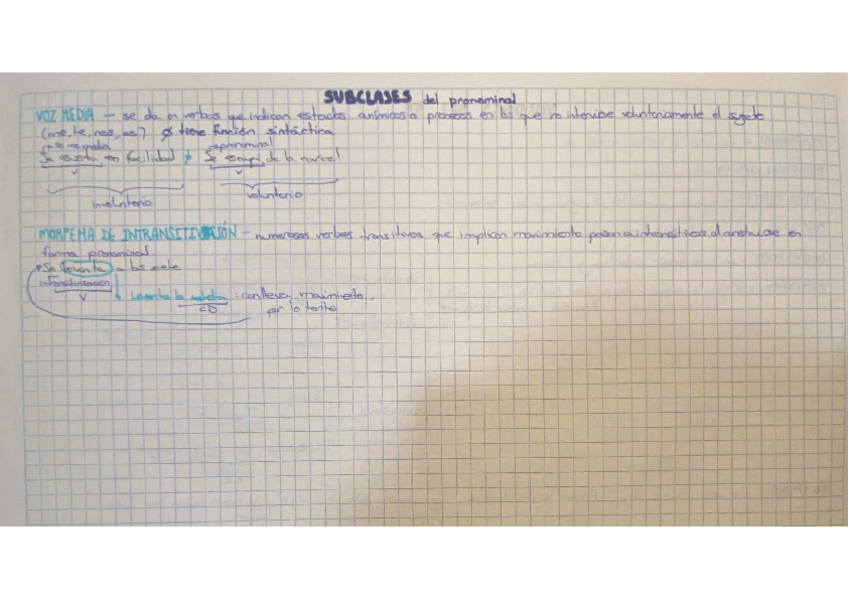 SUBCLASES del pronominal
VOZ MEDIA – se da en verbos que indican estados anímicos o procesos en los que no interviene voluntariamente el sujeto
(me, te, nos, os) Ø tiene función sintáctica
pronominal
Se asusta con facilidad Se escapó de la carcel
V V
involuntario voluntario
MORFEMA DE INTRANSITIVACIÓN – numerosos verbos transitivos que implican movimiento pasan a intransitivos al construirse en
forma pronominal
Se levanta a las siete
intransitivización
V Levanta la : conlleva movimiento,
CD por lo tanto